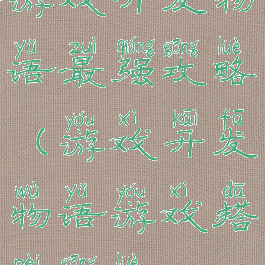 游戏开发物
yǔ zuì qiáng gōng lüè
语最强攻略
yóu xì kāi fā
(游戏开发
wù yǔ yóu xì dā
物语游戏塔
pèi gōng lüè